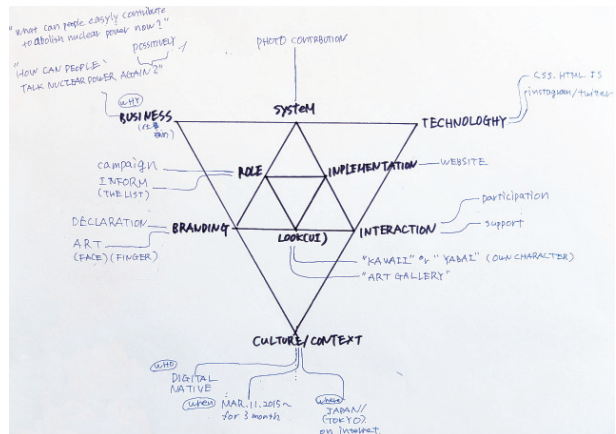 "What can people easyly contribute
to abolish nuclear power now?"
possitively
"HOW CAN PEOPLE
TALK NUCLEAR POWER AGAIN?"
PHOTO CONTRIBUTION
WHY
BUSINESS
SYSTEM
TECHNOLOGHY
CSS. HTML. JS
instagram/twitter
campaign
INFORM
(THE LIST)
ROLE
INPLEMENTATION
WEBSITE
DECLARATION
ART
(FACE) (FINGER)
BRANDING
LOOK(UI)
INTERACTION
participation
support
"KAWAII" or "YABAI" (OWN CHARACTER)
"ART GALLERY"
CULTURE/CONTEXT
WHO
DIGITAL
NATIVE
when
MAR.11.2015~
for 3 month
where
JAPAN//
(TOKYO)
on internet